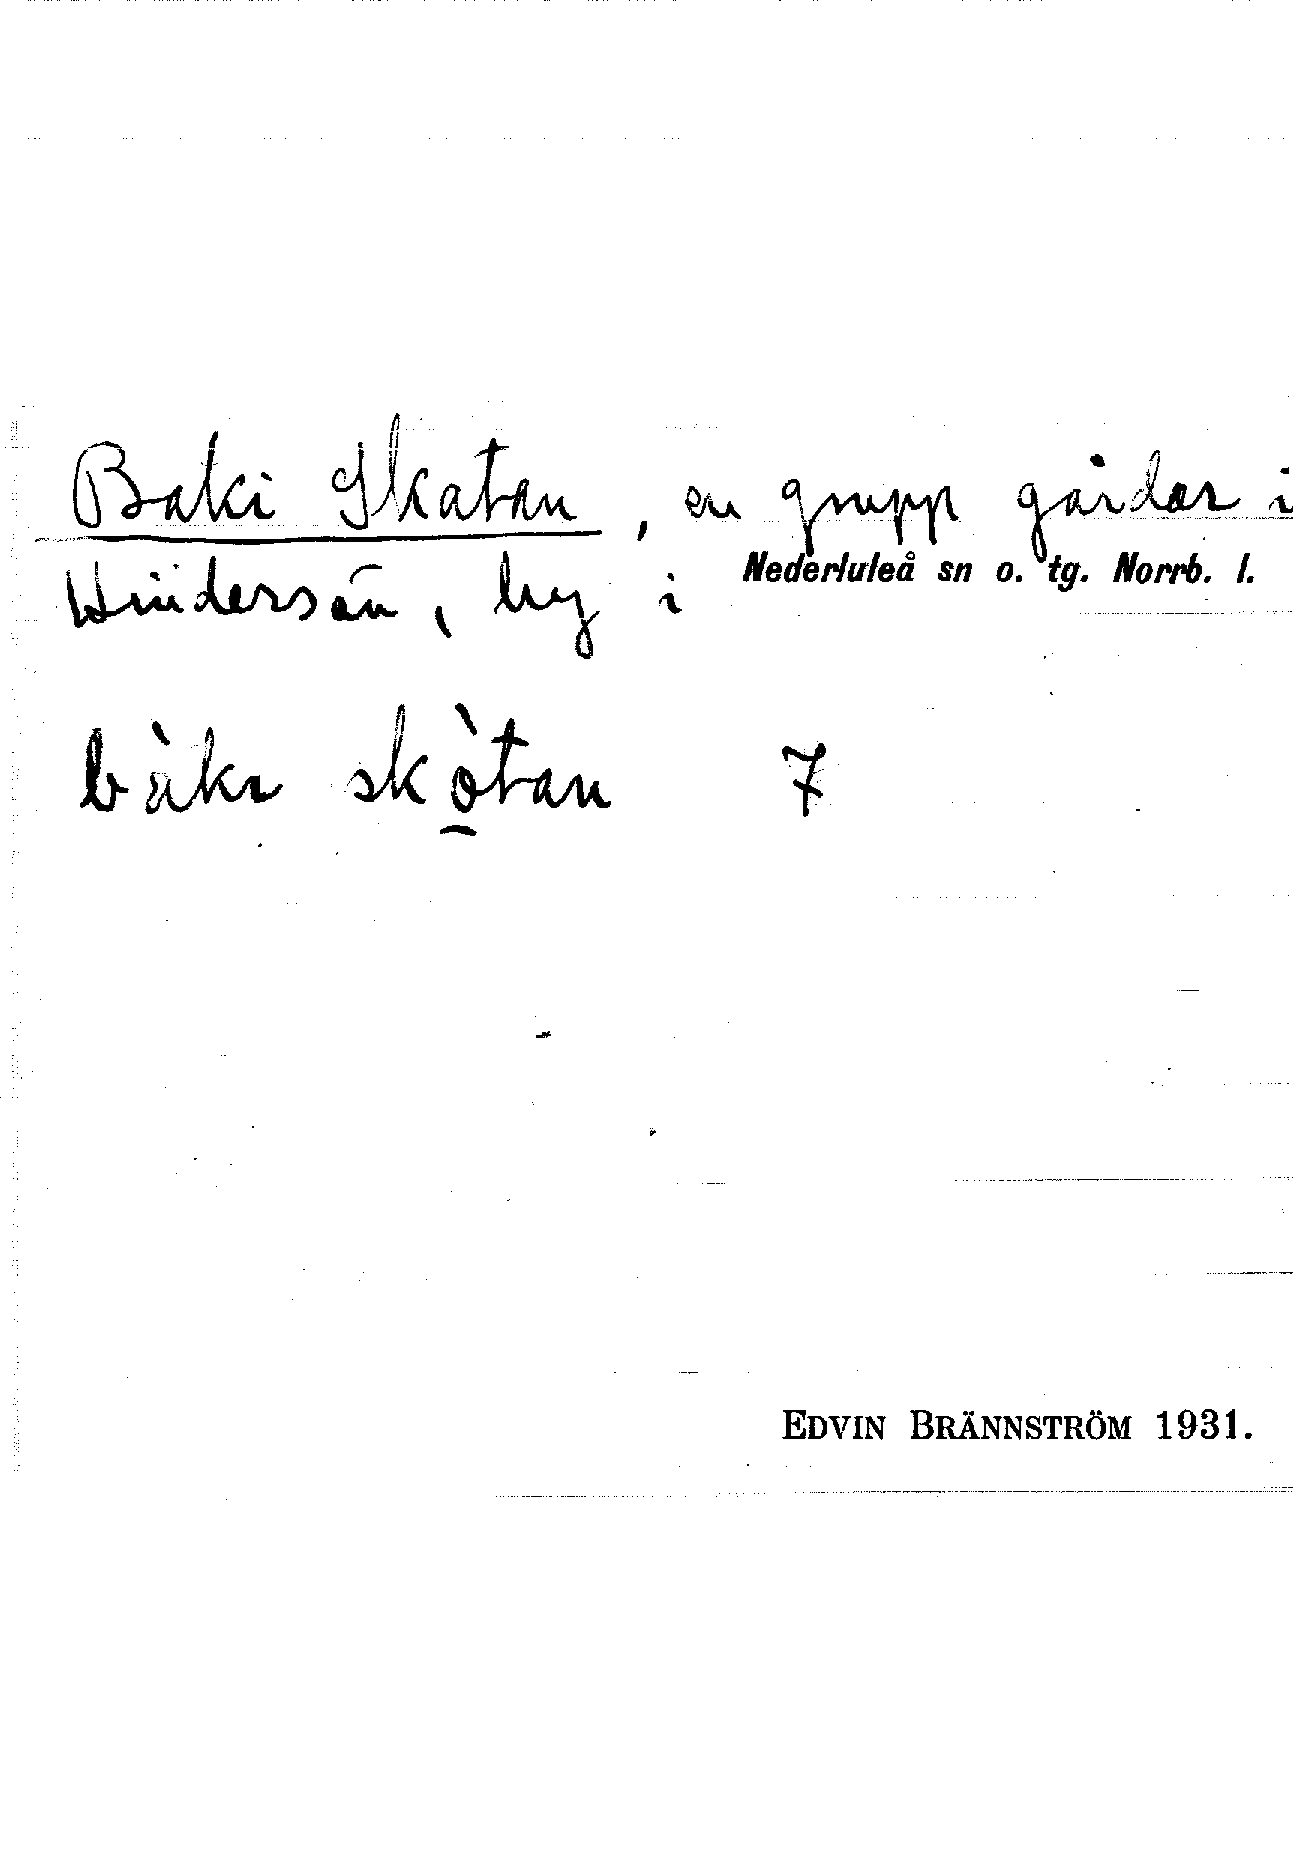 Baki Skatan, en grupp gårdar i
Hindersön, by i Nederluleå sn o. tg. Norrb. l.
bàkı skò̱tan 7
EDVIN BRÄNNSTRÖM 1931.